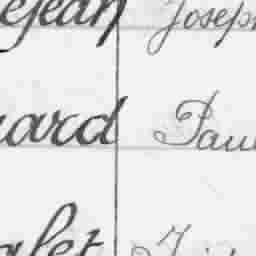 ejean Joseph
uard Paul
alet